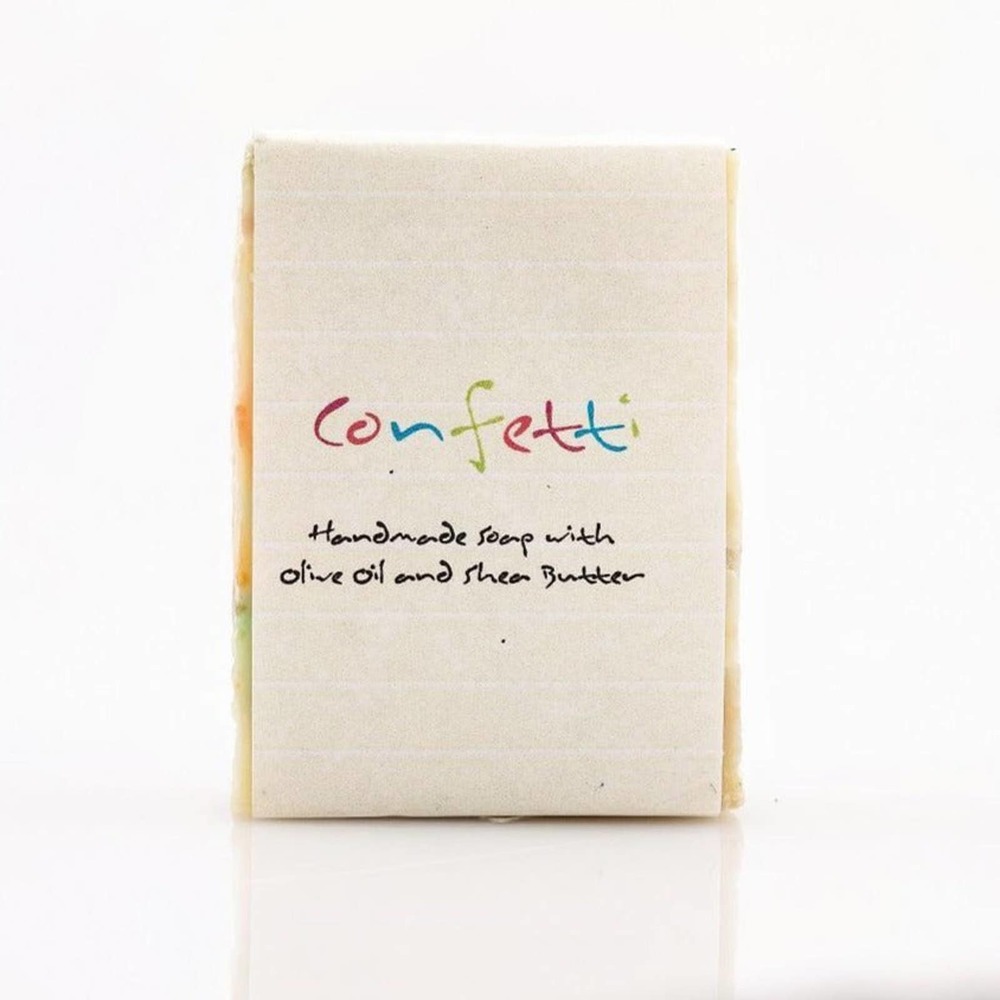 Confetti
Handmade soap with
Olive Oil and Shea Butter